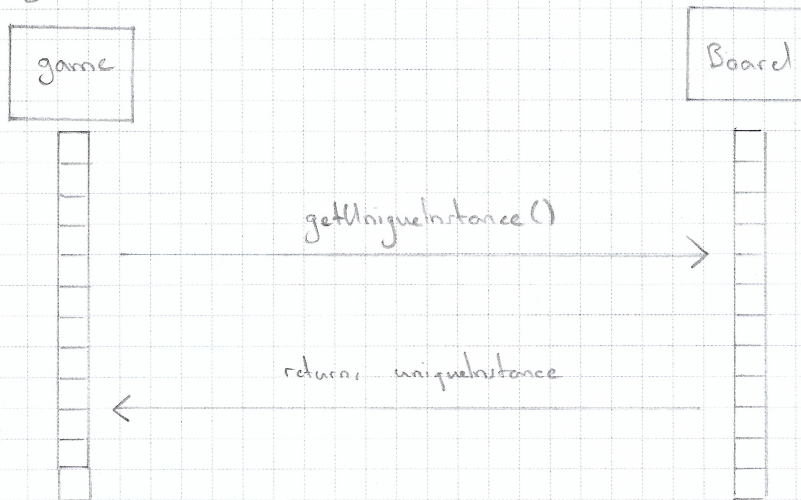 game
Board
getUniqueInstance()
return, uniqueInstance